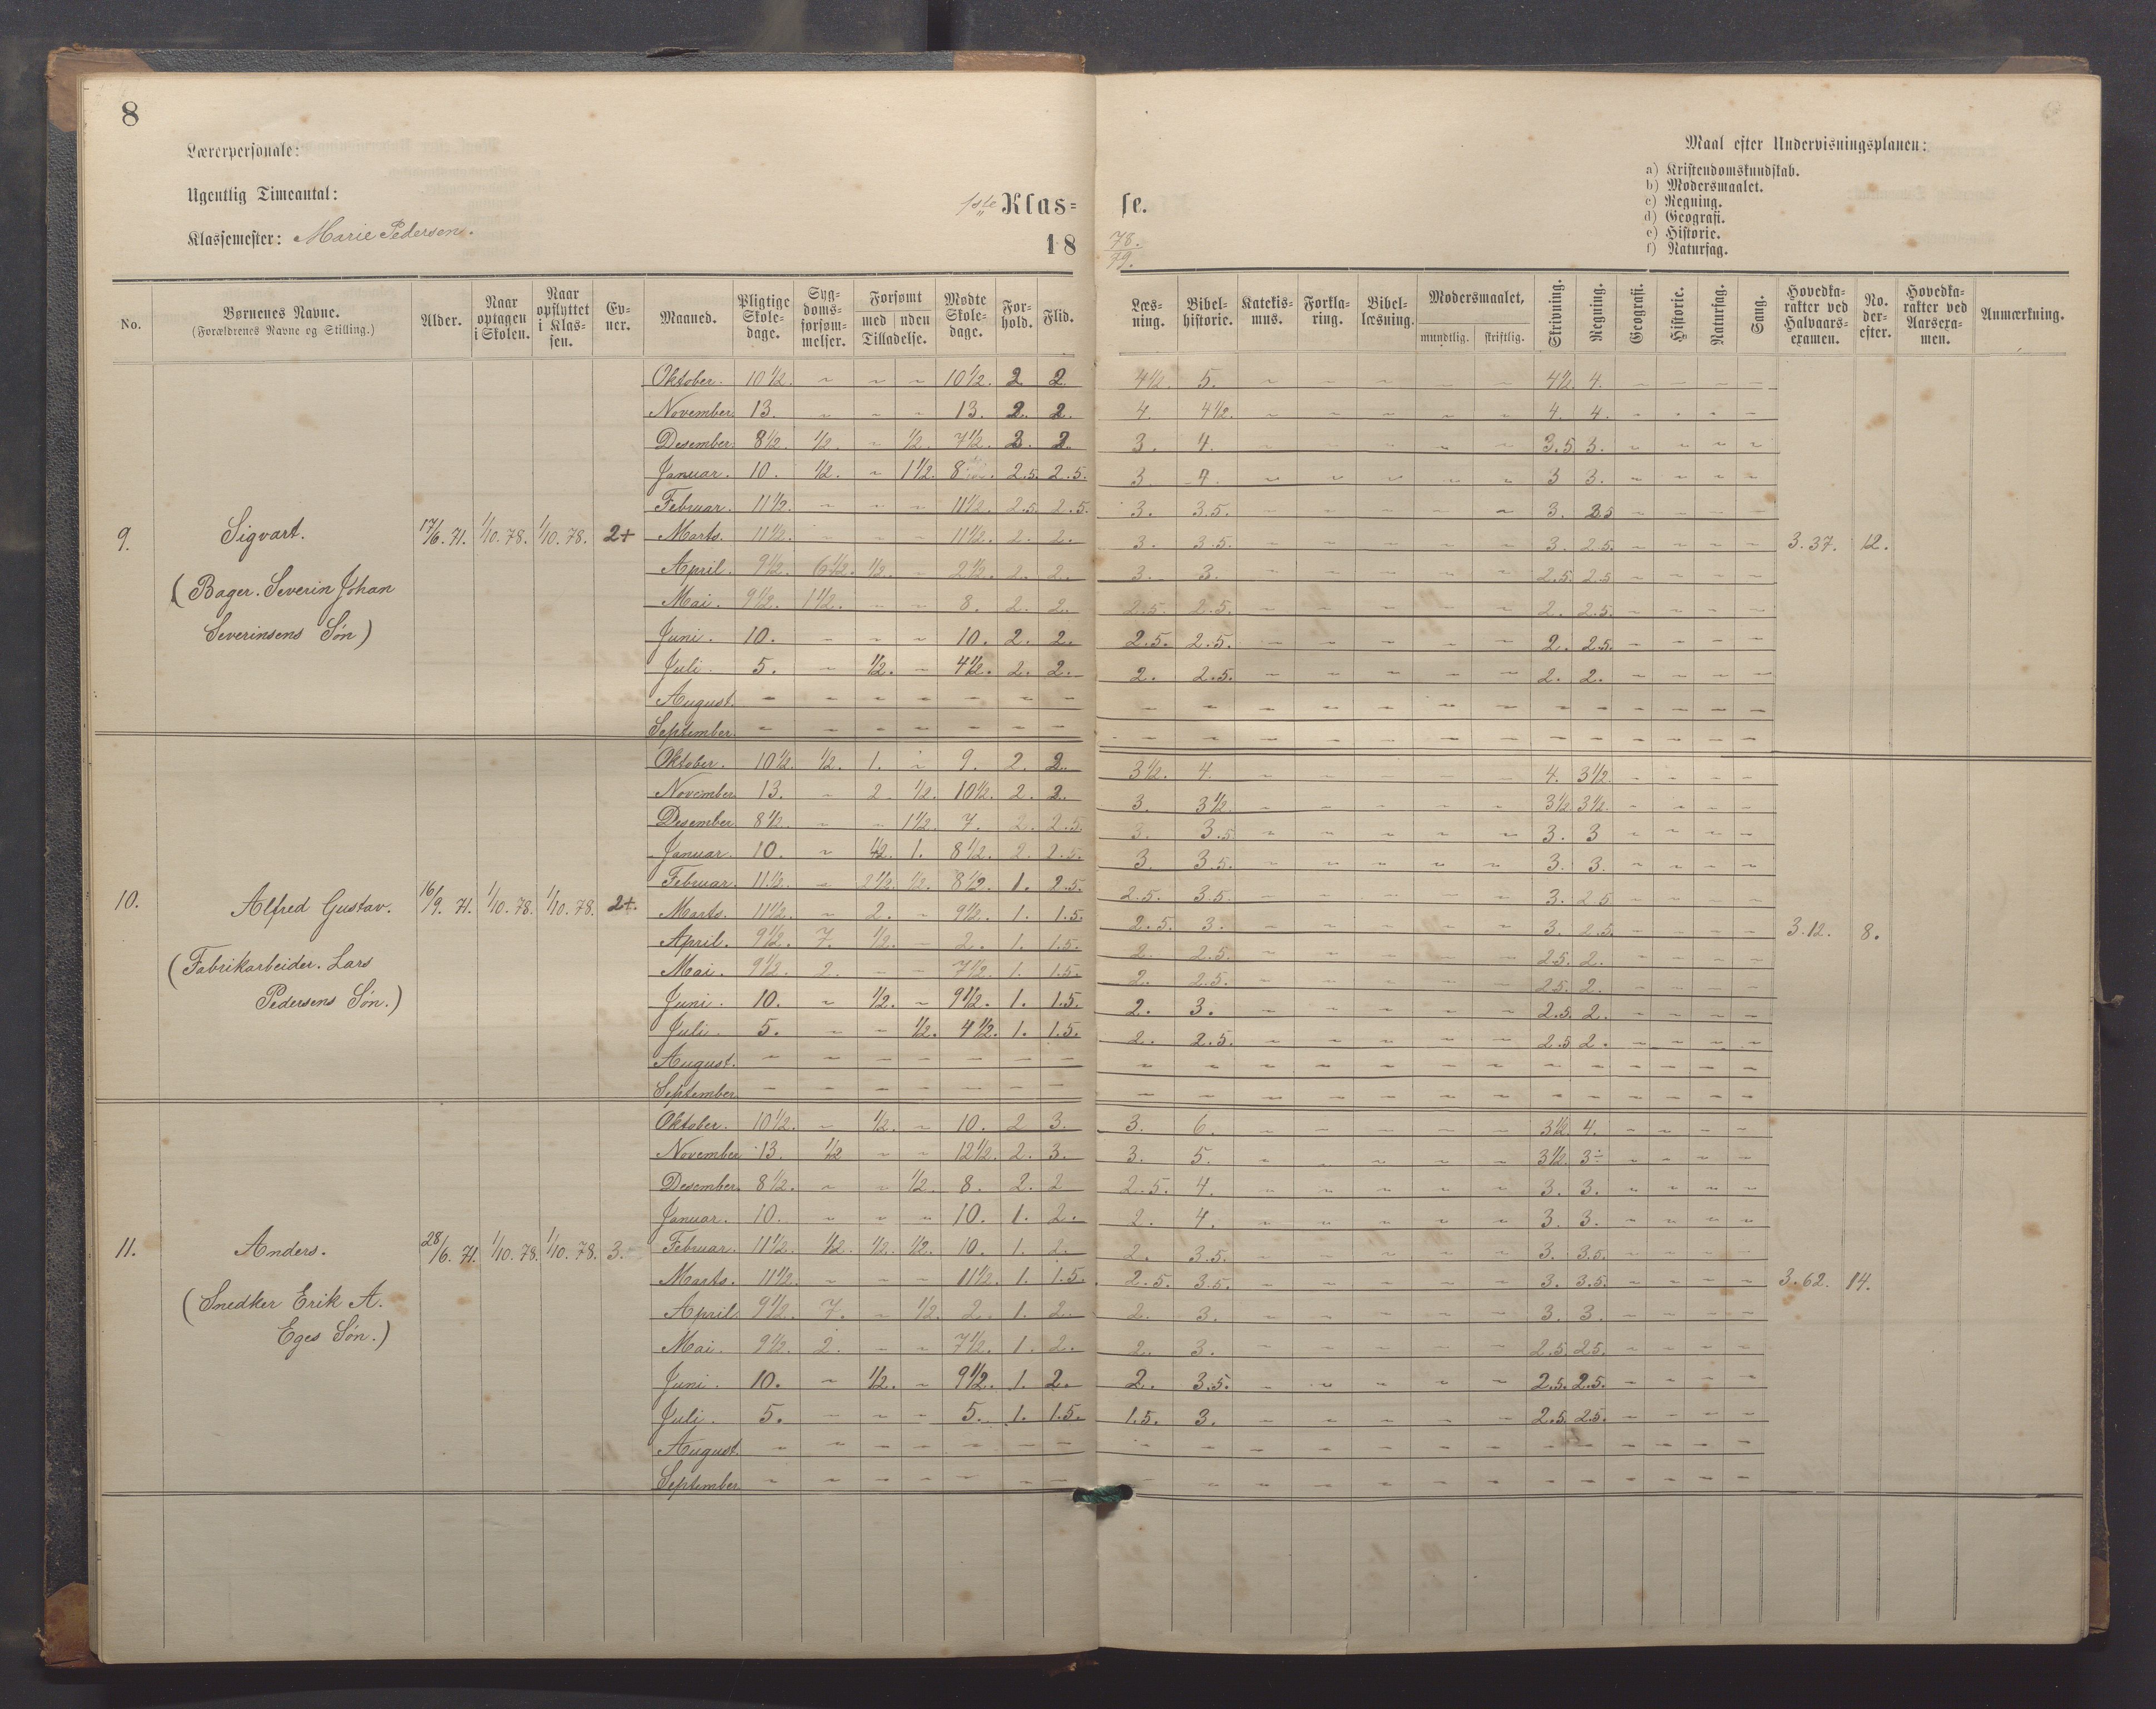 8
Lærerpersonale:
Ugentlig Timeantal:
Klassemester: Marie Pedersen.
1ste Klas= se.
18 78./79.
Maal efter Undervisningsplanen:
a) Kristendomskundskab.
b) Modersmaalet.
c) Regning.
d) Geografi.
e) Historie.
f) Naturfag.
No. | Børnenes Navne. (Forældrenes Navne og Stilling.) | Alder. | Naar optagen i Skolen. | Naar opflyttet i Klassen. | Evner. | Maaned. | Pligtige Skoledage. | Sygdomsforsømmelser. | Forsømt med uden Tilladelse. | Mødte Skoledage. | Forhold. | Flid. | Læsning. | Bibelhistorie. | Katekismus. | Forklaring. | Bibellæsning. | Modersmaalet, mundtlig. skriftlig. | Skrivning. | Regning. | Geografi. | Historie. | Naturfag. | Sang. | Hovedkarakter ved Halvaarsexamen. | No. derefter. | Hovedkarakter ved Aarsexamen. | Anmærkning.
9. Sigvart. 17/6. 71. 1/10. 78. 1/10. 78. 2+ 3.37. 12.
(Bager. Severin Johan
Severinsens Søn)
Oktober. 10 1/2. ~ ~ ~ 10 1/2. 2. 2. 4 1/2. 5. ~ ~ ~ ~ ~ 4 1/2. 4. ~ ~ ~ ~
November. 13. ~ ~ ~ 13. 2. 2. 4. 4 1/2. ~ ~ ~ ~ ~ 4. 4. ~ ~ ~ ~
Desember. 8 1/2. 1/2. ~ 1/2. 7 1/2. 2. 2. 3. 4. ~ ~ ~ ~ ~ 3.5 3. ~ ~ ~ ~
Januar. 10. 1/2. ~ 1 1/2. 8. 2.5. 2.5. 3. 4. ~ ~ ~ ~ ~ 3 3. ~ ~ ~ ~
Februar. 11 1/2. ~ ~ ~ 11 1/2. 2.5. 2.5. 3. 3.5. ~ ~ ~ ~ ~ 3. 2.5 ~ ~ ~ ~
Marts. 11 1/2. ~ ~ ~ 11 1/2. 2. 2. 3. 3.5. ~ ~ ~ ~ ~ 3. 2.5. ~ ~ ~ ~
April. 9 1/2. 6 1/2. 1/2. ~ 2 1/2. 2. 2. 3. 3. ~ ~ ~ ~ ~ 2.5. 2.5 ~ ~ ~ ~
Mai. 9 1/2. 1 1/2. ~ ~ 8. 2. 2. 2.5. 2.5. ~ ~ ~ ~ ~ 2. 2.5. ~ ~ ~ ~
Juni. 10. ~ ~ ~ 10. 2. 2. 2.5. 2.5. ~ ~ ~ ~ ~ 2. 2.5. ~ ~ ~ ~
Juli. 5. ~ 1/2. ~ 4 1/2. 2. 2. 2. 2.5. ~ ~ ~ ~ ~ 2. 2. ~ ~ ~ ~
August. ~ ~ ~ ~ ~ ~ ~ ~ ~ ~ ~ ~ ~ ~ ~ ~ ~ ~ ~ ~
September. ~ ~ ~ ~ ~ ~ ~ ~ ~ ~ ~ ~ ~ ~ ~ ~ ~ ~ ~ ~
10. Alfred Gustav. 16/9. 71. 1/10. 78. 1/10. 78. 2+. 3.12. 8.
(Fabrikarbeider. Lars
Pedersens Søn.)
Oktober. 10 1/2. 1/2. 1. ~ 9. 2. 2. 3 1/2. 4. ~ ~ ~ ~ ~ 4. 3 1/2. ~ ~ ~ ~
November. 13. ~ 2. 1/2. 10 1/2. 2. 2. 3. 3 1/2. ~ ~ ~ ~ ~ 3 1/2. 3 1/2. ~ ~ ~ ~
Desember. 8 1/2. ~ ~ 1 1/2. 7. 2. 2.5. 3. 3.5 ~ ~ ~ ~ ~ 3. 3 ~ ~ ~ ~
Januar. 10. ~ 1/2. 1. 8 1/2. 2. 2.5. 3. 3.5. ~ ~ ~ ~ ~ 3. 3. ~ ~ ~ ~
Februar. 11 1/2. ~ 2 1/2. 1/2. 8 1/2. 1. 2.5. 2.5. 3.5. ~ ~ ~ ~ ~ 3. 2.5 ~ ~ ~ ~
Marts. 11 1/2. ~ 2. ~ 9 1/2. 1. 1.5. 2.5. 3. ~ ~ ~ ~ ~ 3. 2.5. ~ ~ ~ ~
April. 9 1/2. 7. 1/2. ~ 2. 1. 1.5. 2. 2.5. ~ ~ ~ ~ ~ 2.5. 2. ~ ~ ~ ~
Mai. 9 1/2. 2. ~ ~ 7 1/2. 1. 1.5. 2. 2.5. ~ ~ ~ ~ ~ 2.5. 2. ~ ~ ~ ~
Juni. 10. ~ 1/2. ~ 9 1/2. 1. 1.5. 2. 3. ~ ~ ~ ~ ~ 2.5. 2. ~ ~ ~ ~
Juli. 5. ~ ~ 1/2. 4 1/2. 1. 1.5. 2. 2.5. ~ ~ ~ ~ ~ 2.5 2. ~ ~ ~ ~
August. ~ ~ ~ ~ ~ ~ ~ ~ ~ ~ ~ ~ ~ ~ ~ ~ ~ ~ ~ ~
September. ~ ~ ~ ~ ~ ~ ~ ~ ~ ~ ~ ~ ~ ~ ~ ~ ~ ~ ~ ~
11. Anders. 28/6. 71. 1/10. 78. 1/10. 78. 3. 3.62. 14.
(Snedker Erik A.
Eges Søn.)
Oktober. 10 1/2. ~ 1/2. ~ 10. 2 3. 3. 6. ~ ~ ~ ~ ~ 3 1/2. 4. ~ ~ ~ ~
November 13. 1/2 ~ ~ 12 1/2. 2. 3. 3. 5. ~ ~ ~ ~ ~ 3 1/2. 3÷ ~ ~ ~ ~
Desember. 8 1/2. ~ ~ 1/2. 8. 2. 2 2.5. 4. ~ ~ ~ ~ ~ 3. 3. ~ ~ ~ ~
Januar. 10. ~ ~ ~ 10. 1. 2. 2. 4. ~ ~ ~ ~ ~ 3. 3. ~ ~ ~ ~
Februar. 11 1/2. 1/2. 1/2. 1/2. 10. 1. 2. 2. 3.5. ~ ~ ~ ~ ~ 3. 3.5. ~ ~ ~ ~
Marts. 11 1/2. ~ ~ ~ 11 1/2. 1. 1.5. 2.5. 3.5. ~ ~ ~ ~ ~ 3. 3.5. ~ ~ ~ ~
April. 9 1/2. 7. ~ 1/2. 2. 1. 2. 2. 3. ~ ~ ~ ~ ~ 3. 3. ~ ~ ~ ~
Mai. 9 1/2. 2. ~ ~ 7 1/2. 1. 2. 2. 3. ~ ~ ~ ~ ~ 2.5. 2.5. ~ ~ ~ ~
Juni. 10. ~ 1/2. ~ 9 1/2. 1. 2. 2. 3.5. ~ ~ ~ ~ ~ 2.5. 2.5. ~ ~ ~ ~
Juli. 5. ~ ~ ~ 5. 1. 1.5. 1.5. 3. ~ ~ ~ ~ ~ 2.5. 2.5. ~ ~ ~ ~
August. ~ ~ ~ ~ ~ ~ ~ ~ ~ ~ ~ ~ ~ ~ ~ ~ ~ ~ ~ ~
September ~ ~ ~ ~ ~ ~ ~ ~ ~ ~ ~ ~ ~ ~ ~ ~ ~ ~ ~ ~